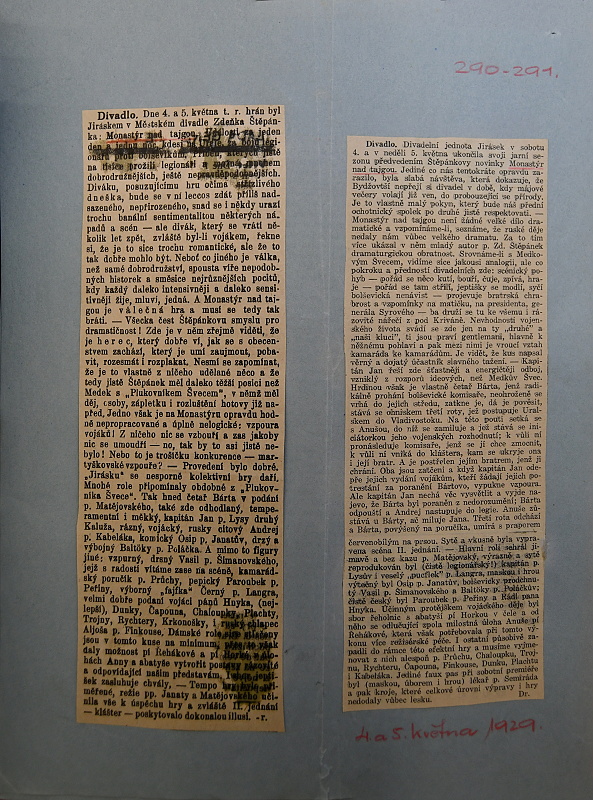 290-291.
Divadlo. Dne 4. a 5. května t. r. hrán byl
Jiráskem v Městském divadle Zdeňka Štěpán-
ka: Monastýr nad tajgou.
jeden
den a jednu noc kdesi na
onářů proti bolševikům,
tisíce prožili legionáři a
dobrodružnějších, ještě
Diváku, posuzujícímu hru očima střízlivého
dneška, bude se v ní leccos zdát příliš nad-
sazeného, nepřirozeného, snad se i někdy urazí
trochu banální sentimentalitou některých ná-
padů a scén — ale divák, který se vrátí ně-
kolik let zpět, zvláště byl-li vojákem, řekne
si, že je to sice trochu romantické, ale že to
tak dobře mohlo být. Neboť co jiného je válka,
než samé dobrodružství, spousta víře nepodob-
ných historek a směsice nejrůznějších pocitů,
kdy každý daleko intensivněji a daleko sensi-
tivněji žije, mluví, jedná. A Monastýr nad taj-
gou je válečná hra a musí se tedy tak
bráti. — Všecka čest Štěpánkovu smyslu pro
dramatičnost! Zde je v něm zřejmě viděti, že
je herec, který dobře ví, jak se s obecen-
stvem zachází, který je umí zaujmout, poba-
vit, rozesmát i rozplakat. Nesmí se zapomínat,
že je to vlastně z ničeho udělané něco a že
tedy jistě Štěpánek měl daleko těžší posici než
Medek s „Plukovníkem Švecem", v němž měl
děj, osoby, zápletku i rozluštění hotovy již na-
před. Jedno však je na Monastýru opravdu hod-
ně nepropracované a úplně nelogické: vzpoura
vojáků! Z ničeho nic se vzbouří a zas jakoby
nic se umoudří — no, tak by to asi jistě ne-
bylo! Nebo je to trošičku konkurence — mar-
tyškovské vzpouře? — Provedení bylo dobré.
„Jirásku" se nesporně kolektivní hry daří.
Mnohé role připomínaly obdobné z „Plukov-
níka Švece". Tak hned četař Bárta v podání
p. Matějovského, také zde odhodlaný, tempe-
ramentní i měkký, kapitán Jan p. Lysy druhý
Kaluža, rázný, vojácký, rusky citový Andrej
p. Kabeláka, komický Osip p. Janatův, drzý a
výbojný Baltöky p. Poláčka. A mimo to figury
jiné: vzpurný, drsný Vasil p. Šimanovského,
jejž s radostí vítáme zase na scéně, kamarád-
ský poručík p. Průchy, pepický Paroubek p.
Peřiny, výborný „fajfka" Černý p. Langra,
velmi dobře podaní vojáci pánů Hnyka, (nej-
lepší), Dunky, Čapouna, Chaloupky, Plachty,
Trojny, Rychtery, Krkonošky, i ruský chlapec
Aljoša p. Finkouse. Dámské role
jsou v tomto kuse na minimum,
daly možnost pí Řehákové a pí
hách Anny a abatyše vytvořit postavy
a odpovídající našim představám.
šek zasluhuje chvály, — Tempo
měřené, režie pp. Janaty a Matějovského uči-
nila vše k úspěchu hry a zvláště II. jednání
— klášter — poskytovalo dokonalou illusi. -r.
Divadlo. Divadelní jednota Jirásek v sobotu
4. a v neděli 5. května ukončila svoji jarní se-
zonu předvedením Štěpánkovy novinky Monastýr
nad tajgou. Jediné co nás tentokráte opravdu za-
razilo, byla slabá návštěva, která dokazuje, že
Bydžovští nepřejí si divadel v době, kdy májové
večery volají již ven, do probouzející se přírody.
Je to vlastně malý pokyn, který bude náš přední
ochotnický spolek po druhé jistě respektovati. —
Monastýr nad tajgou není žádné velké dílo dra-
matické a vzpomínáme-li, seznáme, že ruské děje
nedaly nám vůbec velkého dramatu. Za to tím
více ukázal v něm mladý autor p. Zd. Štěpánek
dramaturgickou obratnost. Srovnáme-li s Medko-
vým Švecem, vidíme sice jakousi analogii, ale co
pokroku a předností divadelních zde: scénický po-
hyb — pořád se něco loutí, bouří, čuje, zpívá, hra-
je — pořád se tam střílí, jeptišky se modlí, syčí
bolševická nenávist — projevuje bratrská chra-
brost a vzpomínky na matičku, na presidenta, ge-
nerála Syrového — ba druží se tu ke všemu i rá-
zovité nářečí z pod Kriváně. Nevhodnosti vojen-
ského života svádí se zde jen na ty „druhé" a
„naši kluci", ti jsou praví gentlemani, hlavně k
něžnému pohlaví a pak mezi nimi je vroucí vztah
kamaráda ke kamarádům. Je vidět, že kus napsal
věrný a dojatý účastník slavného tažení. — Kapi-
tán Jan řeší zde šťastněji a energičtěji odboj,
vzniklý z rozporů ideových, než Medkův Švec.
Hrdinou však je vlastně četař Bárta, jenž radi-
kálně prohání bolševické komisaře, neohroženě se
vrhá do jejich středu, zatkne je, dá je pověsit,
stává se ohniskem třetí roty, jež postupuje Ural-
skem do Vladivostoku. Na této pouti setká se
s Anušou, do níž se zamiluje a jež stává se ini-
ciátorkou jeho vojenských rozhodnutí; k vůli ní
pronásleduje komisaře, jenž se jí chce zmocnit,
k vůli ní vniká do kláštera, kam se ukryje ona
i její bratr. A je postřelen jejím bratrem, jenž ji
chrání. Oba jsou zatčeni a když kapitán Jan ode-
pře jejich vydání vojákům, kteří žádají jejich po-
trestání za poranění Bártovo, vypukne vzpoura.
Ale kapitán Jan nechá věc vysvětlit a vyjde na-
jevo, že Bárta byl poraněn z nedorozumění: Bárta
odpouští a Andrej nastupuje do legie. Anuše zů-
stává u Bárty, ač miluje Jana. Třetí rota odchází
a Bárta, povýšený na poručíka, umírá s praporem
červenobílým na prsou. Sytě a vkusně byla vypra-
vena scéna II. jednání. — Hlavní roli sehrál jí-
mavě a bez kazu p. Matějovský, výrazně a sytě
reprodukován byl (čistě legionářsky!) kapitán p.
Lysův i veselý „pucflek" p. Langra, maskou i hrou
výtečný byl Osip p. Janatův, bolševicky prodchnu-
tý Vasil p. Šimanovského a Baltöky p. Poláčkův;
čistě český byl Paroubek p. Peřiny a řádí pana
Hnyka. Účinným protějškem vojáckého děje byl
sbor řeholnic a abatyší pí Horkou v čele a od
něho se odlučující spolu milostná úloha Anuše pí
Řehákové, která však potřebovala při tomto vý-
konu více režisérské péče. I ostatní působivě za-
padli do rámce této efektní hry a musíme vyjme-
novat z nich alespoň p. Průchu, Chaloupku, Troj-
nu, Rychteru, Čapouna, Finkouse, Dunku, Plachtu
i Kabeláka. Jediné faux pas při sobotní premiéře
byl (maskou, úborem i hrou) lékař p. Semiráda
a pak kroje, které celkové úrovni výpravy i hry
nedodaly vůbec lesku. Dr.
4. a 5. května 1929.